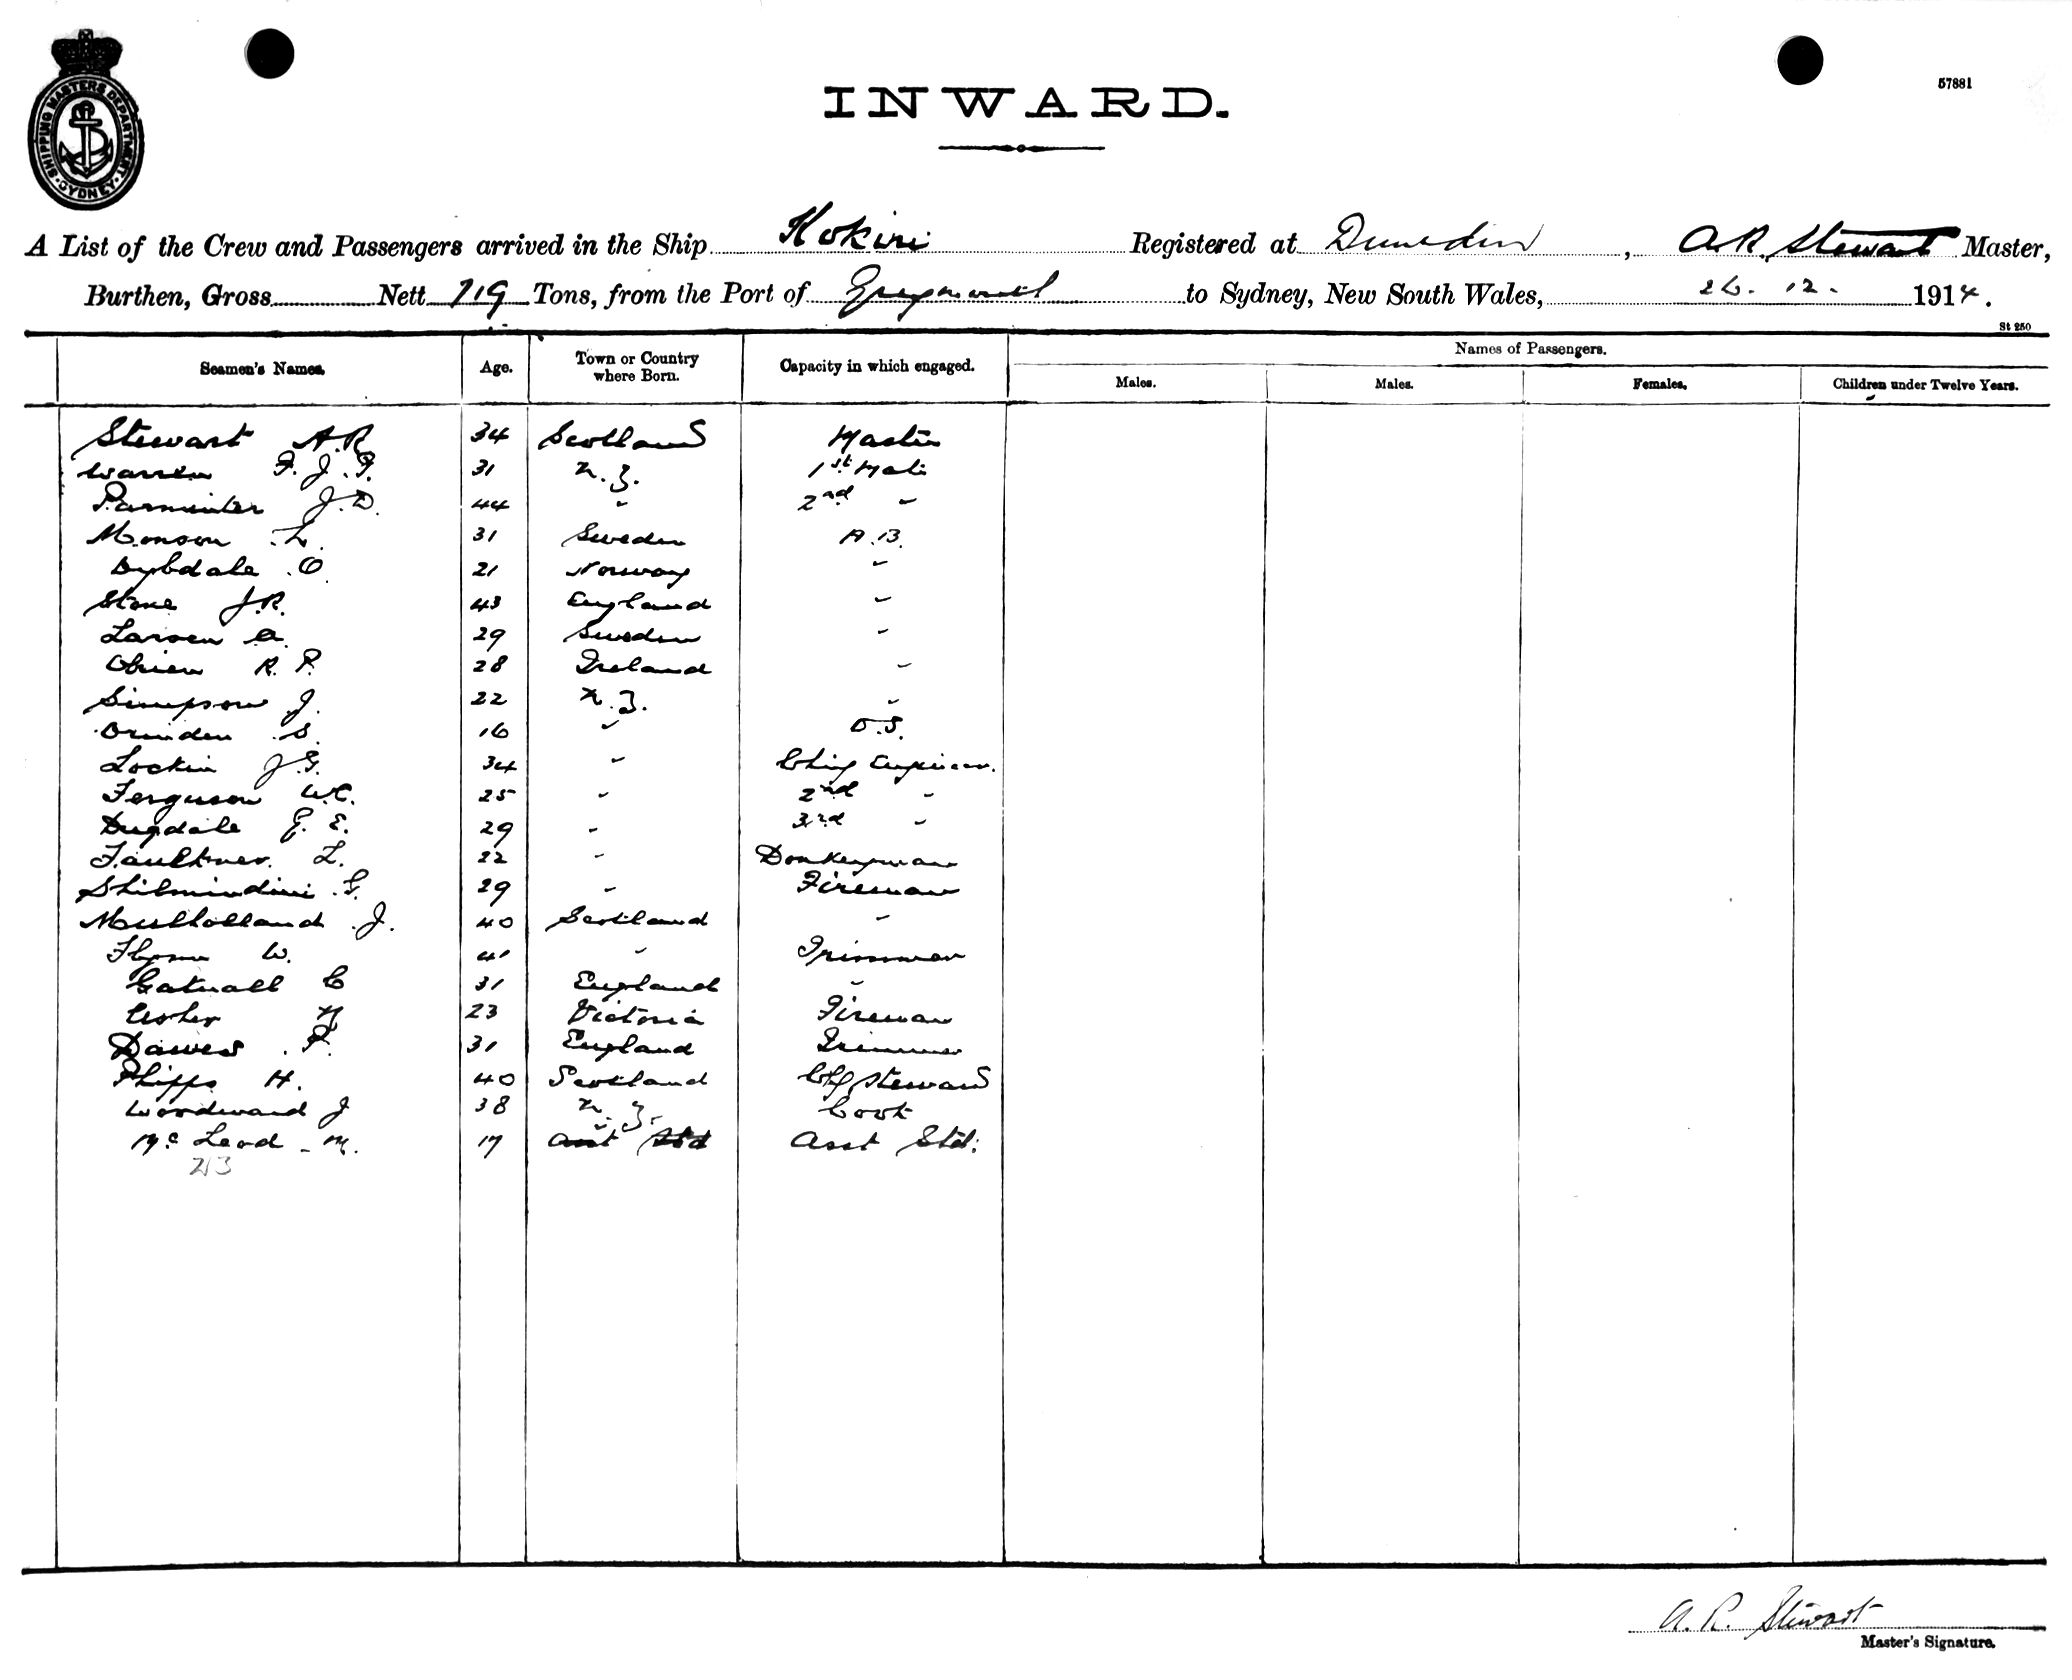 SHIPPING MASTERS DEPARTMENT SYDNEY
57881
INWARD.
A List of the Crew and Passengers arrived in the Ship Kokiri Registered at Dunedin, A.R. Stewart Master,
Burthen, Gross Nett 719 Tons, from the Port of Greymouth to Sydney, New South Wales, 26. 12. 1914.
St 250
Seamen's Names. Age. Town or Country where Born. Capacity in which engaged. Names of Passengers.
Males. Males. Females. Children under Twelve Years.
Stewart A.R. 34 Scotland Master
Warren F. J. F. 31 N.Z. 1st Mate
Parminter J.D. 44 " 2nd "
Monson L. 31 Sweden A.B.
Dybdale O. 21 Norway "
Stone J.R. 43 England "
Larsen A. 29 Sweden "
Obrien R. P. 28 Ireland "
Simpson J. 22 N.Z. "
S. 16 " O.S.
Lockin J.G. 34 " Chief Engineer.
Ferguson W.C. 25 " 2nd "
Dugdale E. E. 29 " 3rd "
Faulkner. L. 22 " Donkeyman
G. 29 " Fireman
Mulholland J. 40 Scotland "
Flynn W. 41 " Trimmer
C 31 England "
Usher 23 Victoria Fireman
Dawes P. 31 England Trimmer
Phipps H. 40 Scotland Chf Steward
Woodward J 38 N.Z. Cook
McLeod M. 17 " Asst Std Asst Std.
23
A. R. Stewart
Master's Signature.